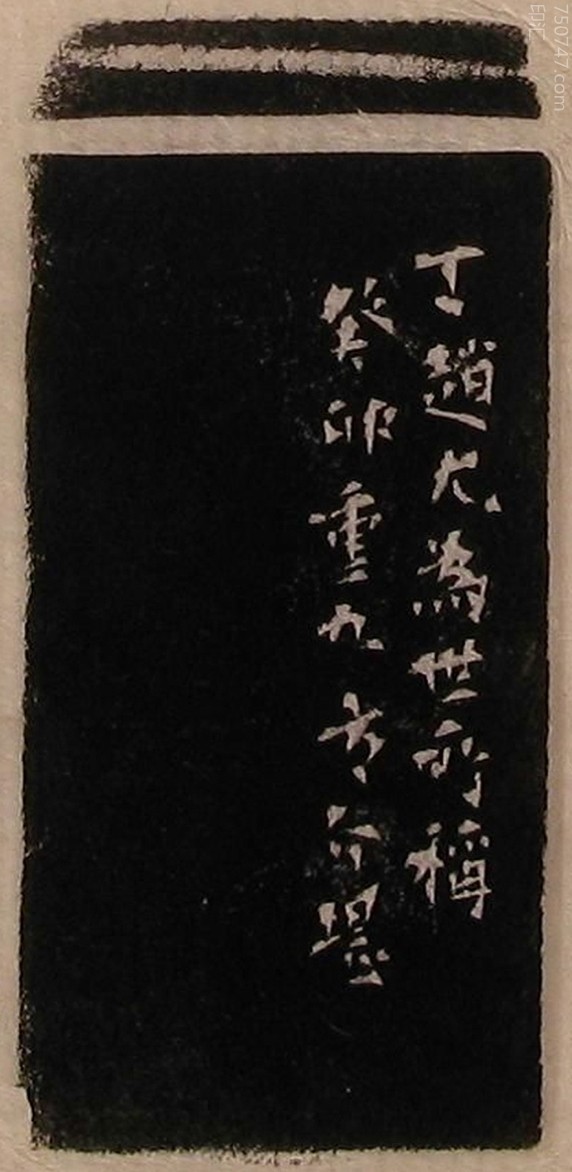 丁趙尤為世所稱
癸卯重九方介堪
印汇
750747.com